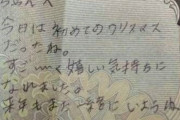 ちゃんへ
今日は初めてのクリスマス
だったね。
すご〜く嬉しい気持ちに
なりました。
来年もまた一緒にいようね